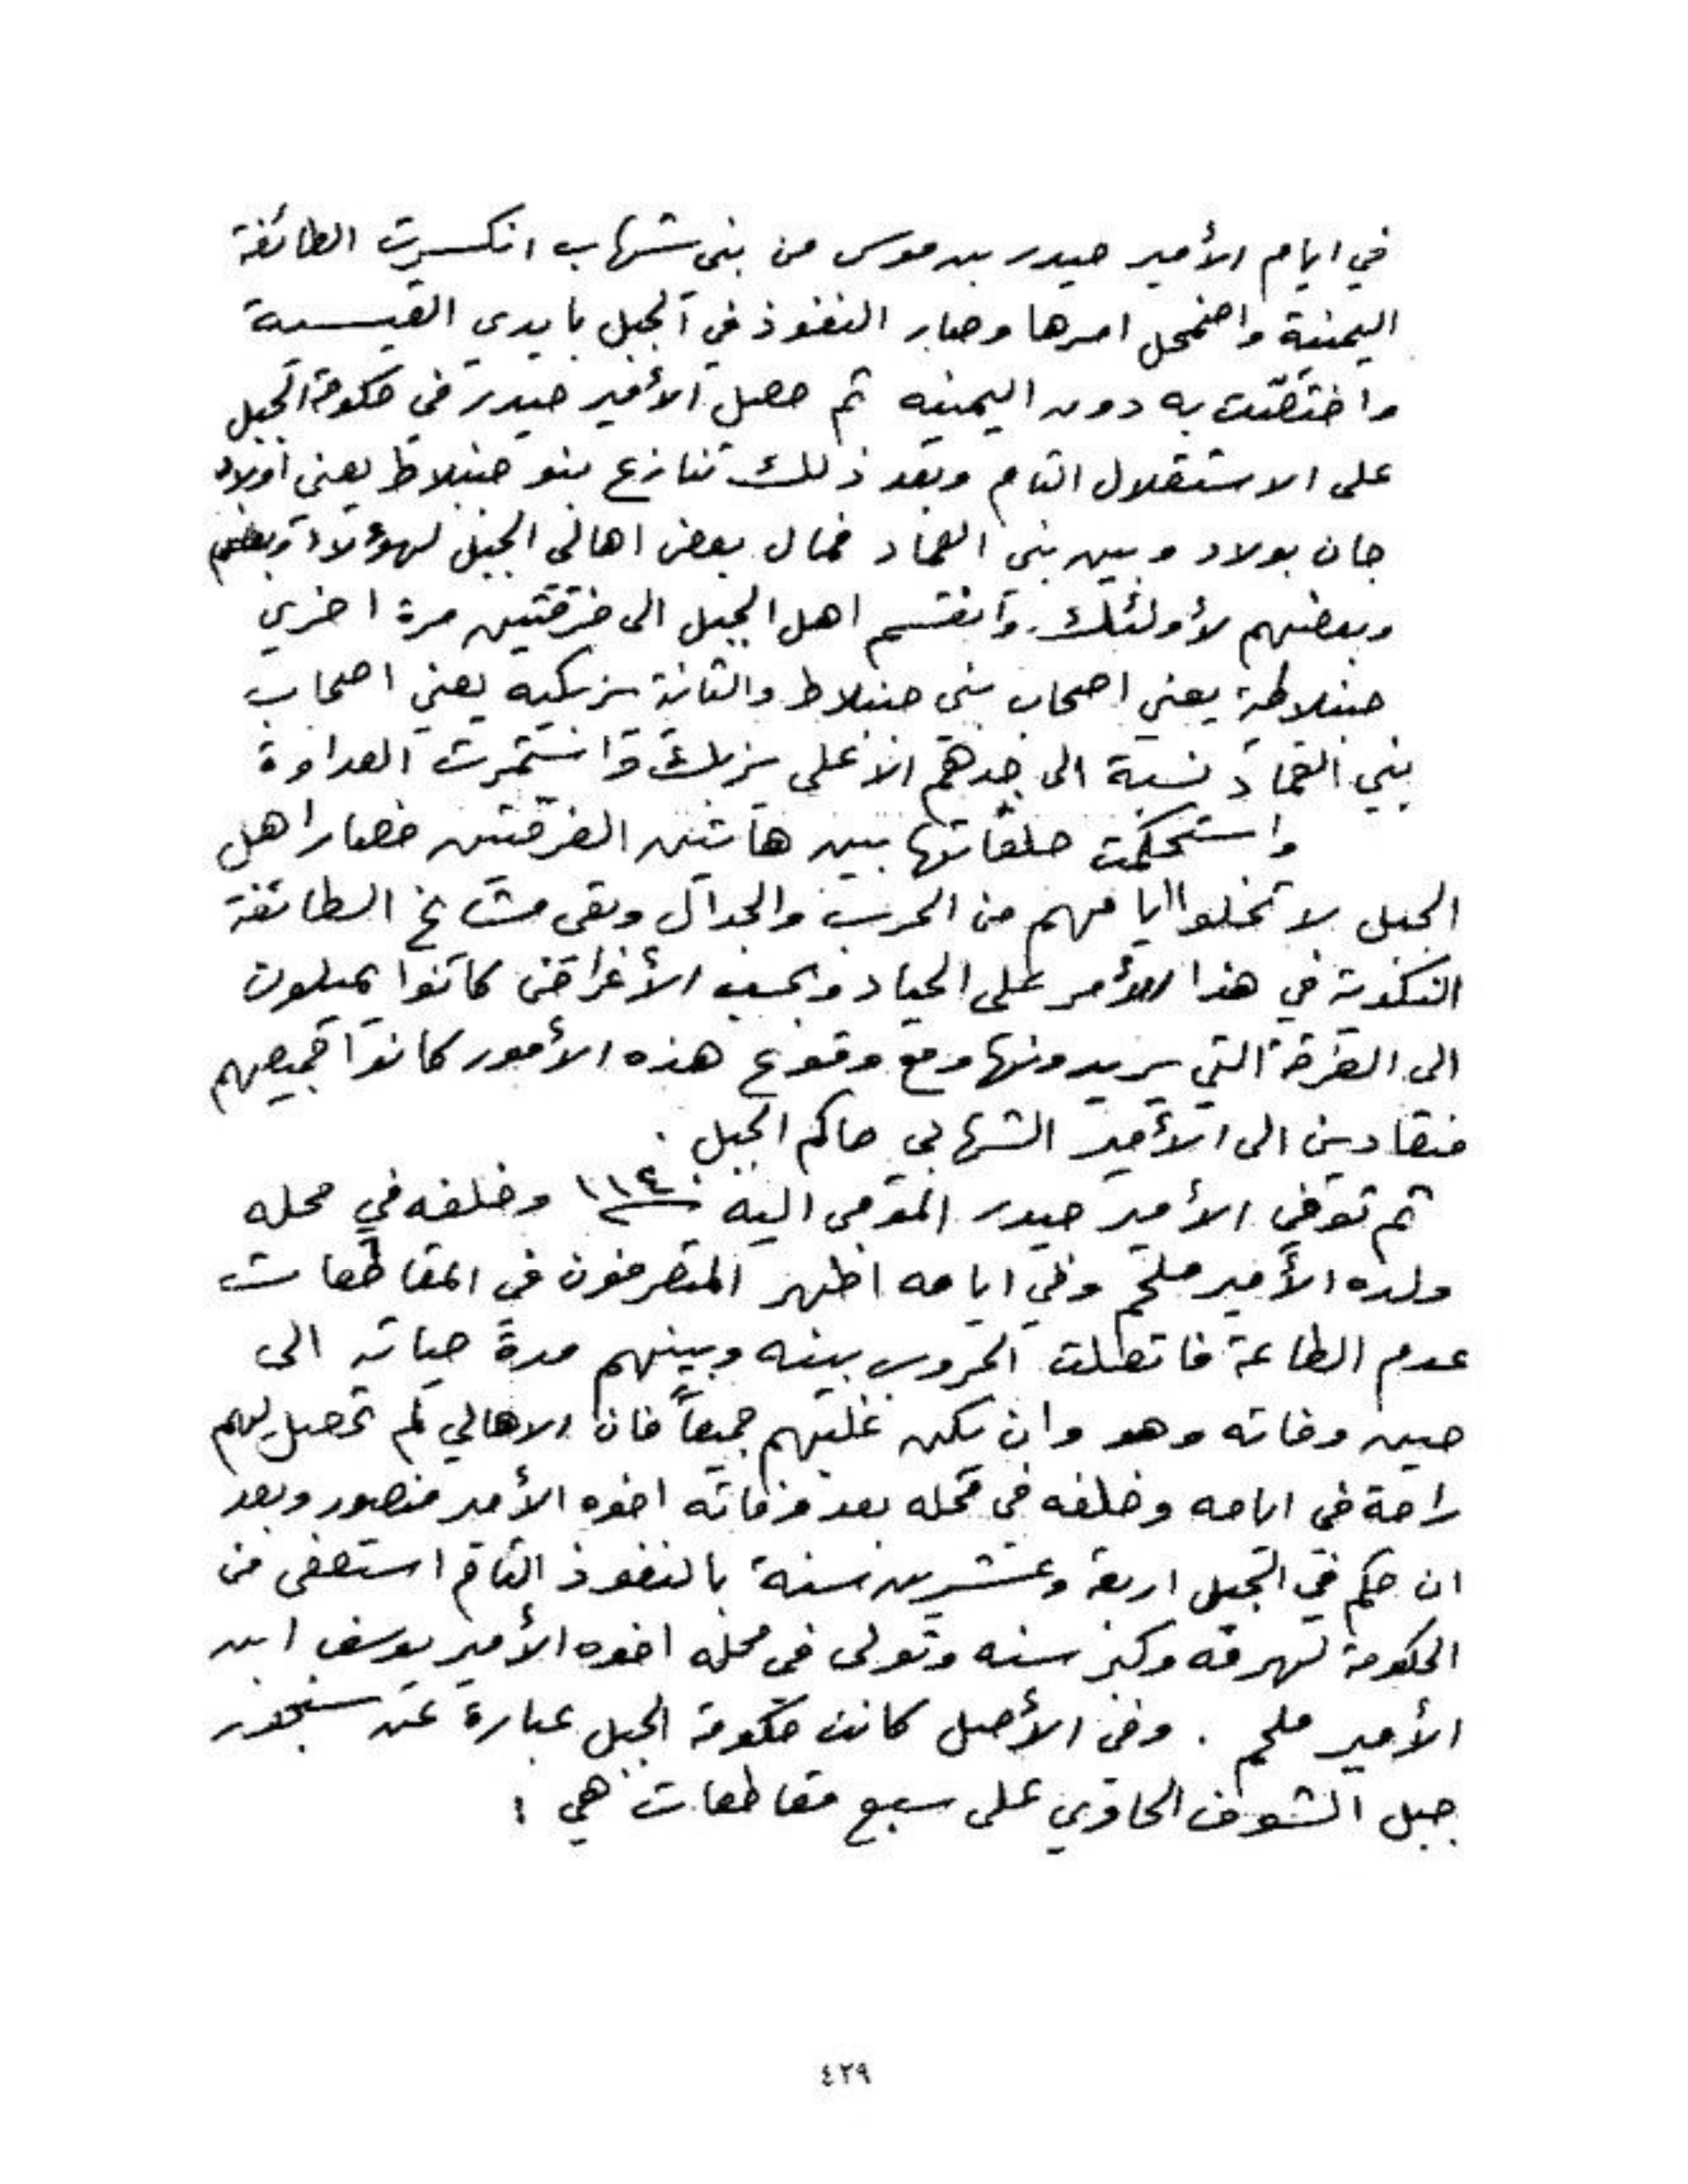 في ايام الأمير حيدر بن موسى من بني شهاب انكسرت الطائفة
اليمنية واضمحل امرها وصار النفوذ في الجبل بايدي القيسية
واختصّت به دون اليمنيه ثم حصل الأمير حيدر في حكومة الجبل
على الاستقلال التام وبعد ذلك تنازع بنو جنبلاط يعني اولاد
جان بولاد وبين بني العماد فمال بعض اهالي الجبل لهؤلاء وبعضهم
وبعضهم لأولئك وانقسم اهل الجبل الى فرقتين مرة اخرى
جنبلاطية يعني اصحاب بني جنبلاط والثانية يزبكيه يعني اصحاب
بني العماد نسبة الى جدهم الاعلى يزبك واستمرت العداوة
واستحكمت حلقاتها بين هاتين الفرقتين فصار اهل
الجبل لا تخلوا ايامهم من الحرب والجدال وبقى مشايخ الطائفة
النكدية في هذا الأمر على الحياد وبحسب الأغراض كانوا يميلون
الى الفرقة التي يريدونها ومع وقوع هذه الأمور كانوا جميعهم
منقادين الى الأمير الشهابي حاكم الجبل .
ثم توفي الأمير حيدر المومى اليه ١١٤٠ وخلفه في محله
ولده الأمير ملحم وفي ايامه اظهر المتصرفون في المقاطعات
عدم الطاعة فاتصلت الحروب بينه وبينهم مدةً حياته الى
حين وفاته وهو وان يكن غلبهم جميعاً فان الاهالي لم تحصل لهم
راحة في ايامه وخلفه في محله بعد وفاته اخوه الأمير منصور وبعد
ان حكم في الجبل اربعة وعشرين سنة بالنفوذ التام استعفى من
الحكومة لهرمه وكبر سنه وتولى في محله اخوه الأمير يوسف ابن
الأمير ملحم . وفي الأصل كانت حكومة الجبل عبارة عن سنجق
جبل الشوف الحاوي على سبع مقاطعات هي :
٤٢٩